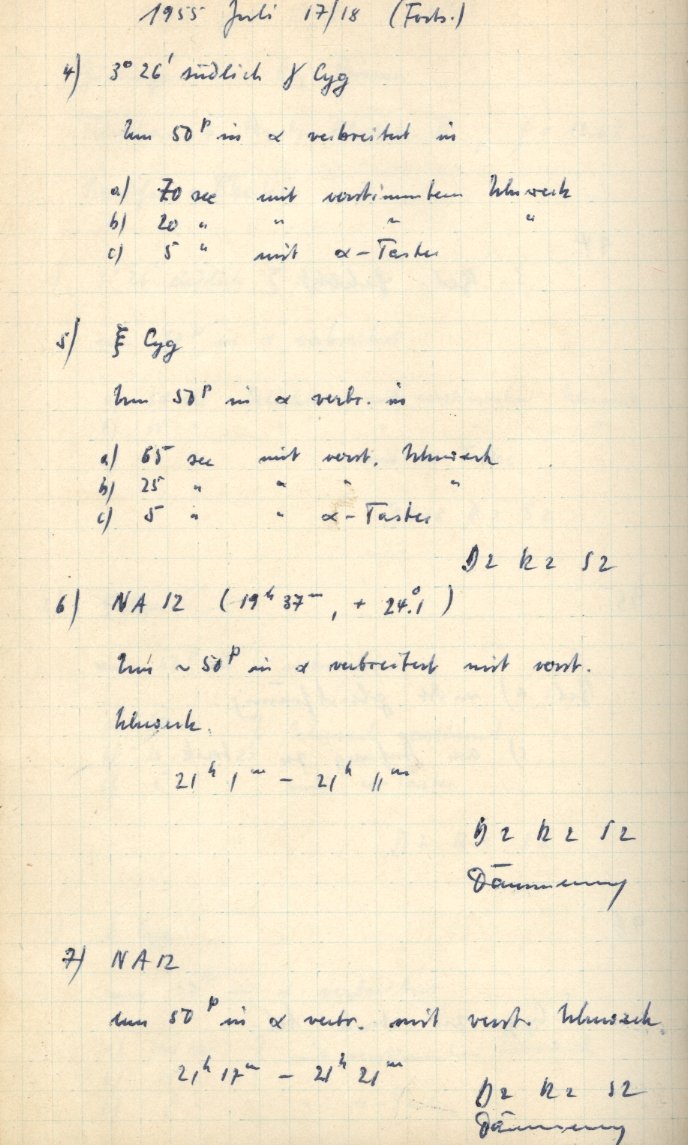 1955 Juli 17/18 (Forts.)
4) 3° 26' südlich γ Cyg
Um 50ᵖ in α verbreitert in
a) 70 sec mit verstimmtem Uhrwerk
b) 20 " " " "
c) 5 " mit α-Taster
5) ξ Cyg
Um 50ᵖ in α verbr. in
a) 65 sec mit verst. Uhrwerk
b) 25 " " " "
c) 5 " " α-Taster
D2 R2 S2
6) NA 12 (19ʰ 37ᵐ, + 24.°1)
Um ~ 50ᵖ in α verbreitert mit verst.
Uhrwerk.
21ʰ 1ᵐ – 21ʰ 11ᵐ
D2 R2 S2
Dämmerung
7) NA 12
um 50ᵖ in α verbr. mit verst. Uhrwerk.
21ʰ 17ᵐ – 21ʰ 21ᵐ
D2 R2 S2
Dämmerung